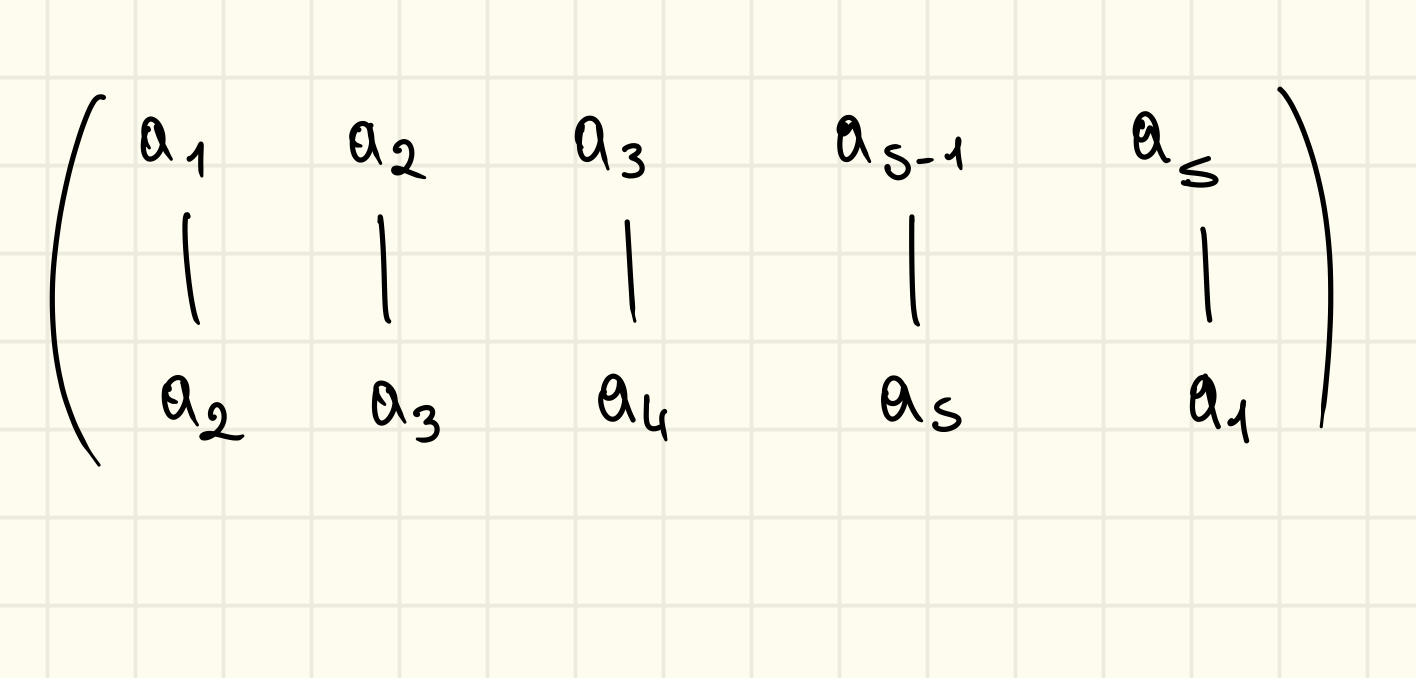 ( a₁ a₂ a₃ aₛ₋₁ aₛ )
| | | | |
a₂ a₃ a₄ aₛ a₁